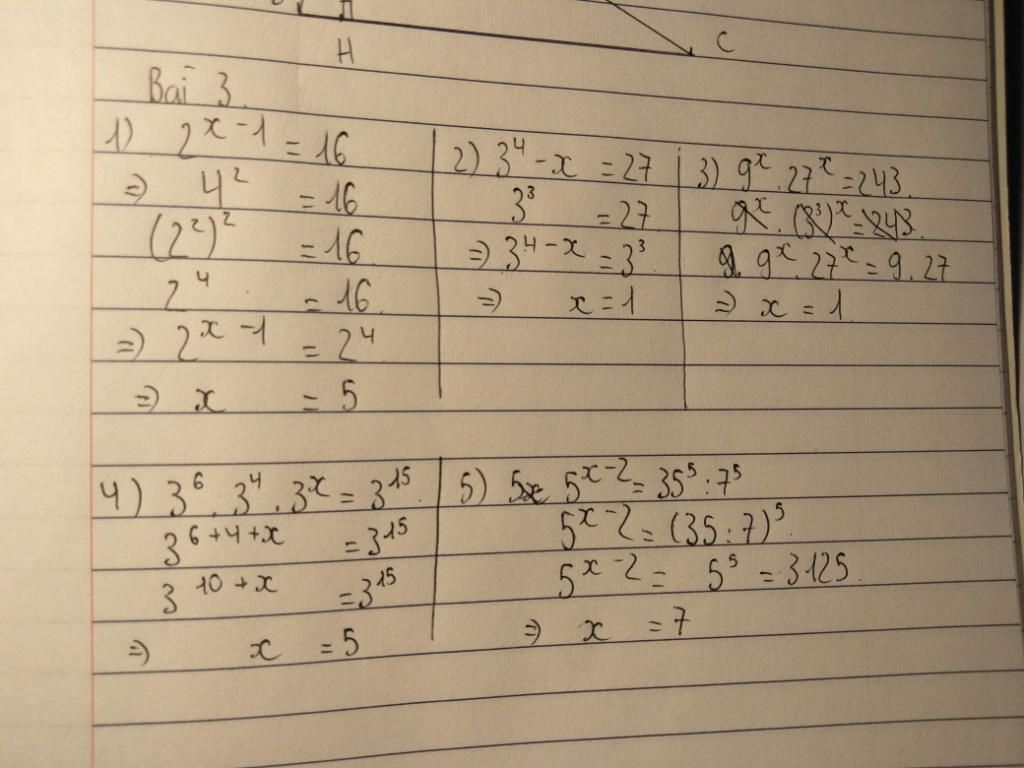 H C
Bài 3.
1) 2^{x-1} = 16
=> 4² = 16
(2²)² = 16
2⁴ = 16
=> 2^{x-1} = 2⁴
=> x = 5
2) 3^{4-x} = 27
3³ = 27
=> 3^{4-x} = 3³
=> x = 1
3) 9^x . 27^x = 243.
9^x . (3³)^x = 243.
9^x . 27^x = 9 . 27
=> x = 1
4) 3⁶ . 3⁴ . 3^x = 3¹⁵.
3^{6+4+x} = 3¹⁵
3^{10+x} = 3¹⁵
=> x = 5
5) 5x 5^{x-2} = 35⁵ : 7⁵
5^{x-2} = (35 : 7)⁵
5^{x-2} = 5⁵ = 3125.
=> x = 7